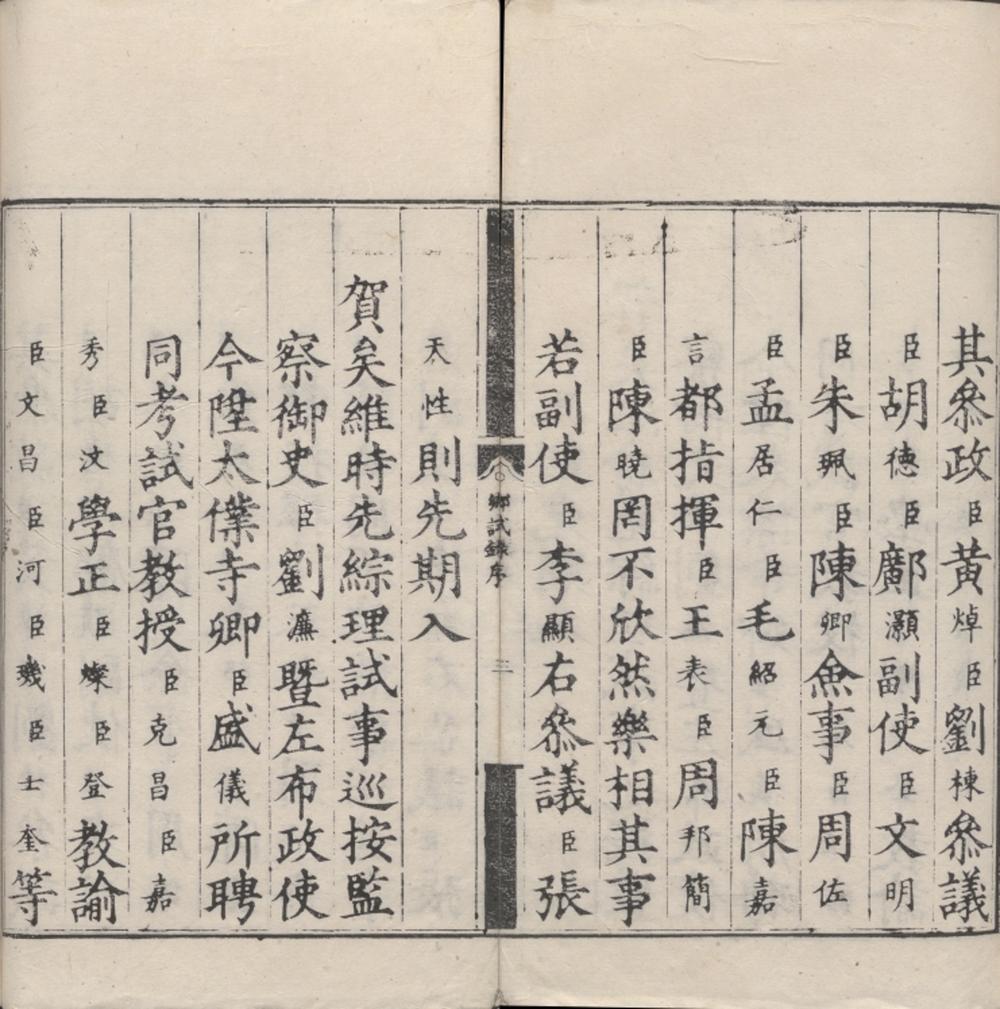 其叅政臣黄焯臣劉棟叅議
臣胡德臣鄺灝副使臣文明
臣朱珮臣陳卿僉事臣周佐
臣孟居仁臣毛紹元臣陳嘉
言都指揮臣王表臣周邦簡
臣陳曉罔不欣然樂相其事
若副使臣李顯右叅議臣張
鄉試錄序
三
天性則先期入
賀矣維時先綜理試事巡按監
察御史臣劉濂暨左布政使
今陞太僕寺卿臣盛儀所聘
同考試官教授臣克昌臣嘉
秀臣汶學正臣燦臣登教諭
臣文昌臣河臣璣臣士奎等